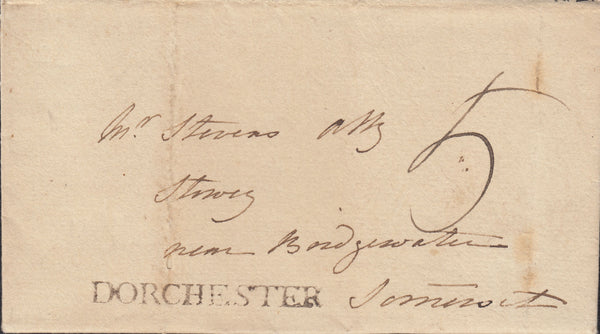 Mr Stevens Atty
5
Stowey
near Bridgewater
DORCHESTER Somerset